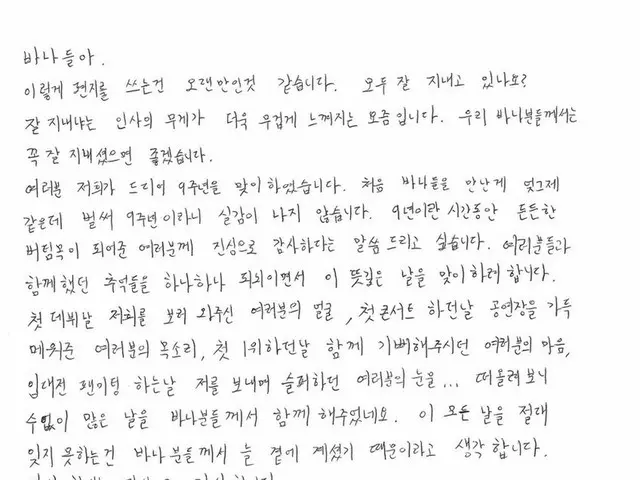 바나들아.
이렇게 편지를 쓰는건 오랜만인것 같습니다. 모두 잘 지내고 있나요?
잘 지내냐는 인사의 무게가 더욱 무겁게 느껴지는 요즘입니다. 우리 바나분들께서는
꼭 잘 지내셨으면 좋겠습니다.
여러분 저희가 드디어 9주년을 맞이하였습니다. 처음 바나들을 만난게 엊그제
같은데 벌써 9주년이라니 실감이 나지 않습니다. 9년이란 시간동안 든든한
버팀목이 되어준 여러분께 진심으로 감사하다는 말씀 드리고 싶습니다. 여러분들과
함께했던 추억들을 하나하나 되뇌이면서 이 뜻깊은 날을 맞이하려 합니다.
첫 데뷔날 저희를 보러 와주신 여러분의 얼굴, 첫 콘서트 하던날 공연장을 가득
메워준 여러분의 목소리, 첫 1위하던날 함께 기뻐해주시던 여러분의 마음,
입대전 팬미팅 하는날 저를 보내며 슬퍼하던 여러분의 눈물... 떠올려보니
수없이 많은 날을 바나분들께서 함께 해주었네요. 이 모든 날을 절대
잊지 못하는건 바나분들께서 늘 곁에 계셨기 때문이라고 생각합니다.